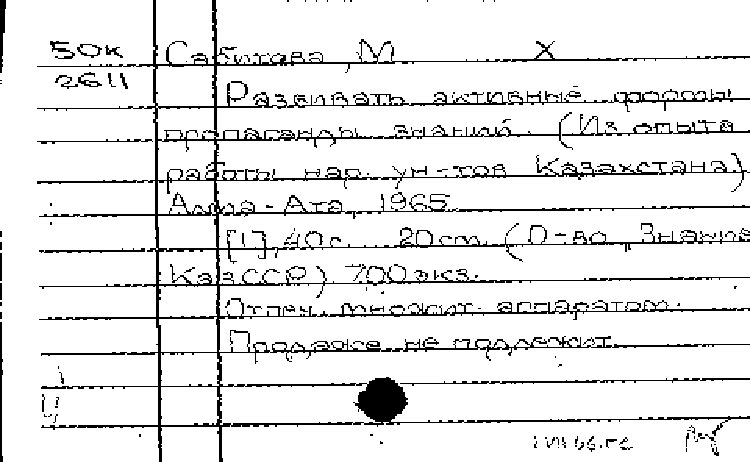 50к Сабитова, М. X
2611
Развивать активные формы
пропаганды знаний. (Из опыта
работы нар. ун-тов Казахстана)
Алма-Ата, 1965
[1], 40с. 20см. (О-во "Знание
КазССР) 700 экз.
Отпеч. множит. аппаратом.
Продаже не подлежит.